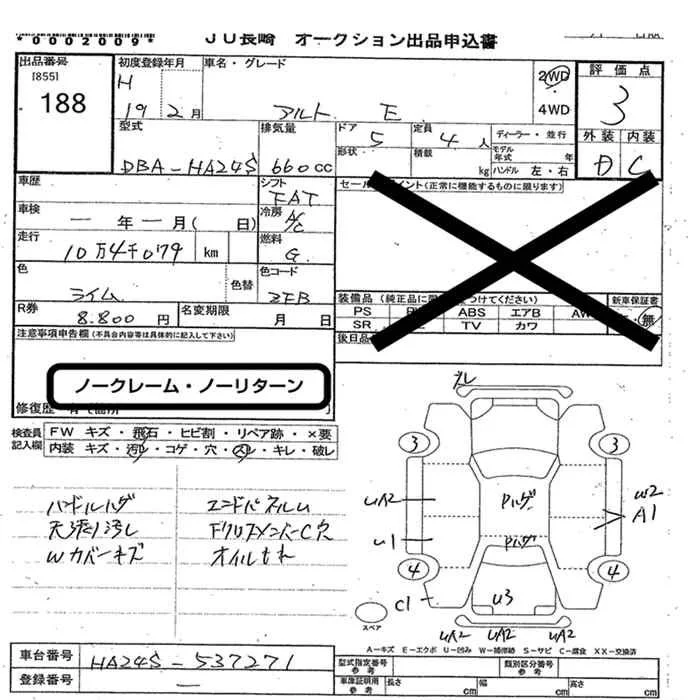 *0002009*
JU長崎 オークション出品申込書
出品番号
[855]
188
初度登録年月
H
19 2月
車名・グレード
アルト E
2WD
4WD
評価点
3
外装 内装
D C
型式
DBA-HA24S
排気量
660cc
ドア 5
形状
定員 4人
積載 kg
ディーラー・並行
モデル年式 年
ハンドル 左・右
車歴
シフト
FAT
セールスポイント(正常に機能するものに限ります)
車検
ー年ー月( 日)
冷房
A/C
走行
10万4千079 km
燃料
G
色
ライム
色替
色コード
ZFB
R券
8.800円
名変期限
月 日
装備品
PS
ABS エアB AW
SR
TV カワ
新車保証書
無
後日品
注意事項申告欄(不具合内容等は具体的に記入して下さい)
ノークレーム・ノーリターン
修復歴
検査員記入欄
FW キズ・飛石・ヒビ割・リペア跡・×要
内装 キズ・汚れ・コゲ・穴・スレ・キレ・破レ
ハンドルハゲ
エンドパネルU
天張り汚レ
Wカバーキズ
オイルモレ
ズレ
3 3
UA2
Pハゲ
W2
A1
U1
Pハゲ
4 4
C1
U3
UA2 UA2 UA2
スペア
A-キズ E-エクボ U-凹み W-補修跡 S-サビ C-腐食 XX-交換済
車台番号
HA24S-537271
登録番号
ー
型式指定番号
参考
類別区分番号
参考
車庫証明用
参考
長さ cm
幅 cm
高さ cm